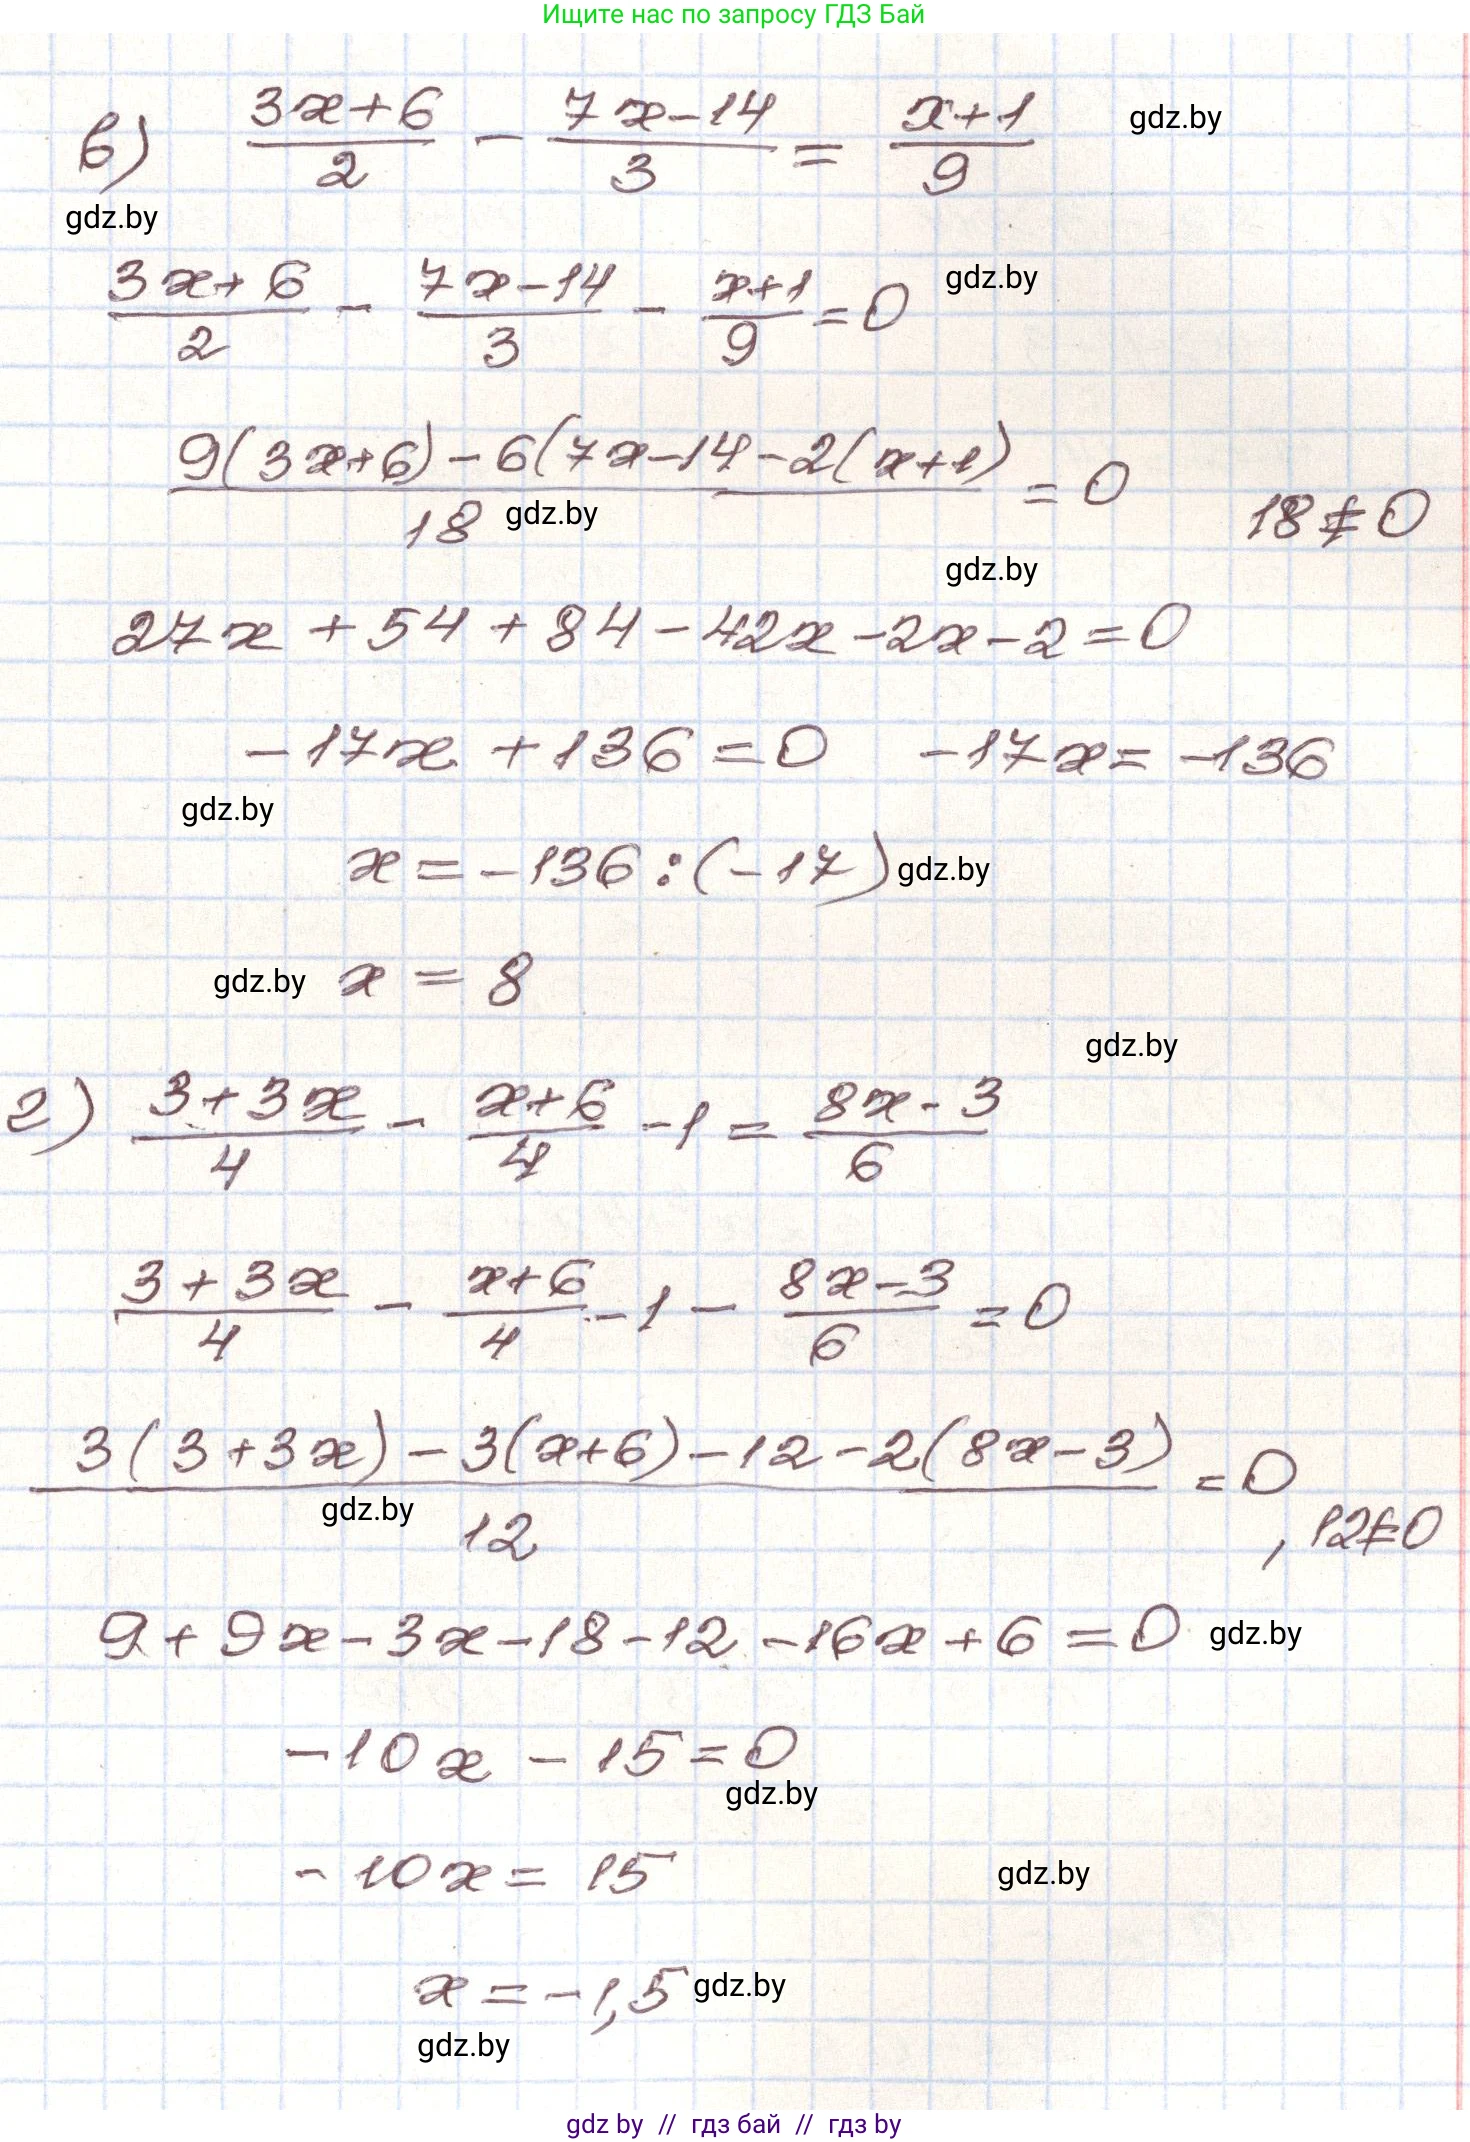 Ищите нас по запросу ГДЗ Бай
в) (3x+6)/2 - (7x-14)/3 = (x+1)/9 gdz.by
gdz.by
(3x+6)/2 - (7x-14)/3 - (x+1)/9 = 0 gdz.by
(9(3x+6)-6(7x-14-2(x+1))/18 = 0 18≠0
gdz.by
gdz.by
27x+54+84-42x-2x-2=0
-17x+136=0 -17x=-136
gdz.by
x=-136:(-17) gdz.by
gdz.by x=8
gdz.by
г) (3+3x)/4 - (x+6)/4 -1 = (8x-3)/6
(3+3x)/4 - (x+6)/4 -1 - (8x-3)/6 = 0
(3(3+3x)-3(x+6)-12-2(8x-3))/12 = 0, 12≠0
gdz.by
9+9x-3x-18-12-16x+6=0 gdz.by
-10x-15=0
gdz.by
-10x=15 gdz.by
x=-1,5 gdz.by
gdz.by
gdz by // гдз бай // гдз by